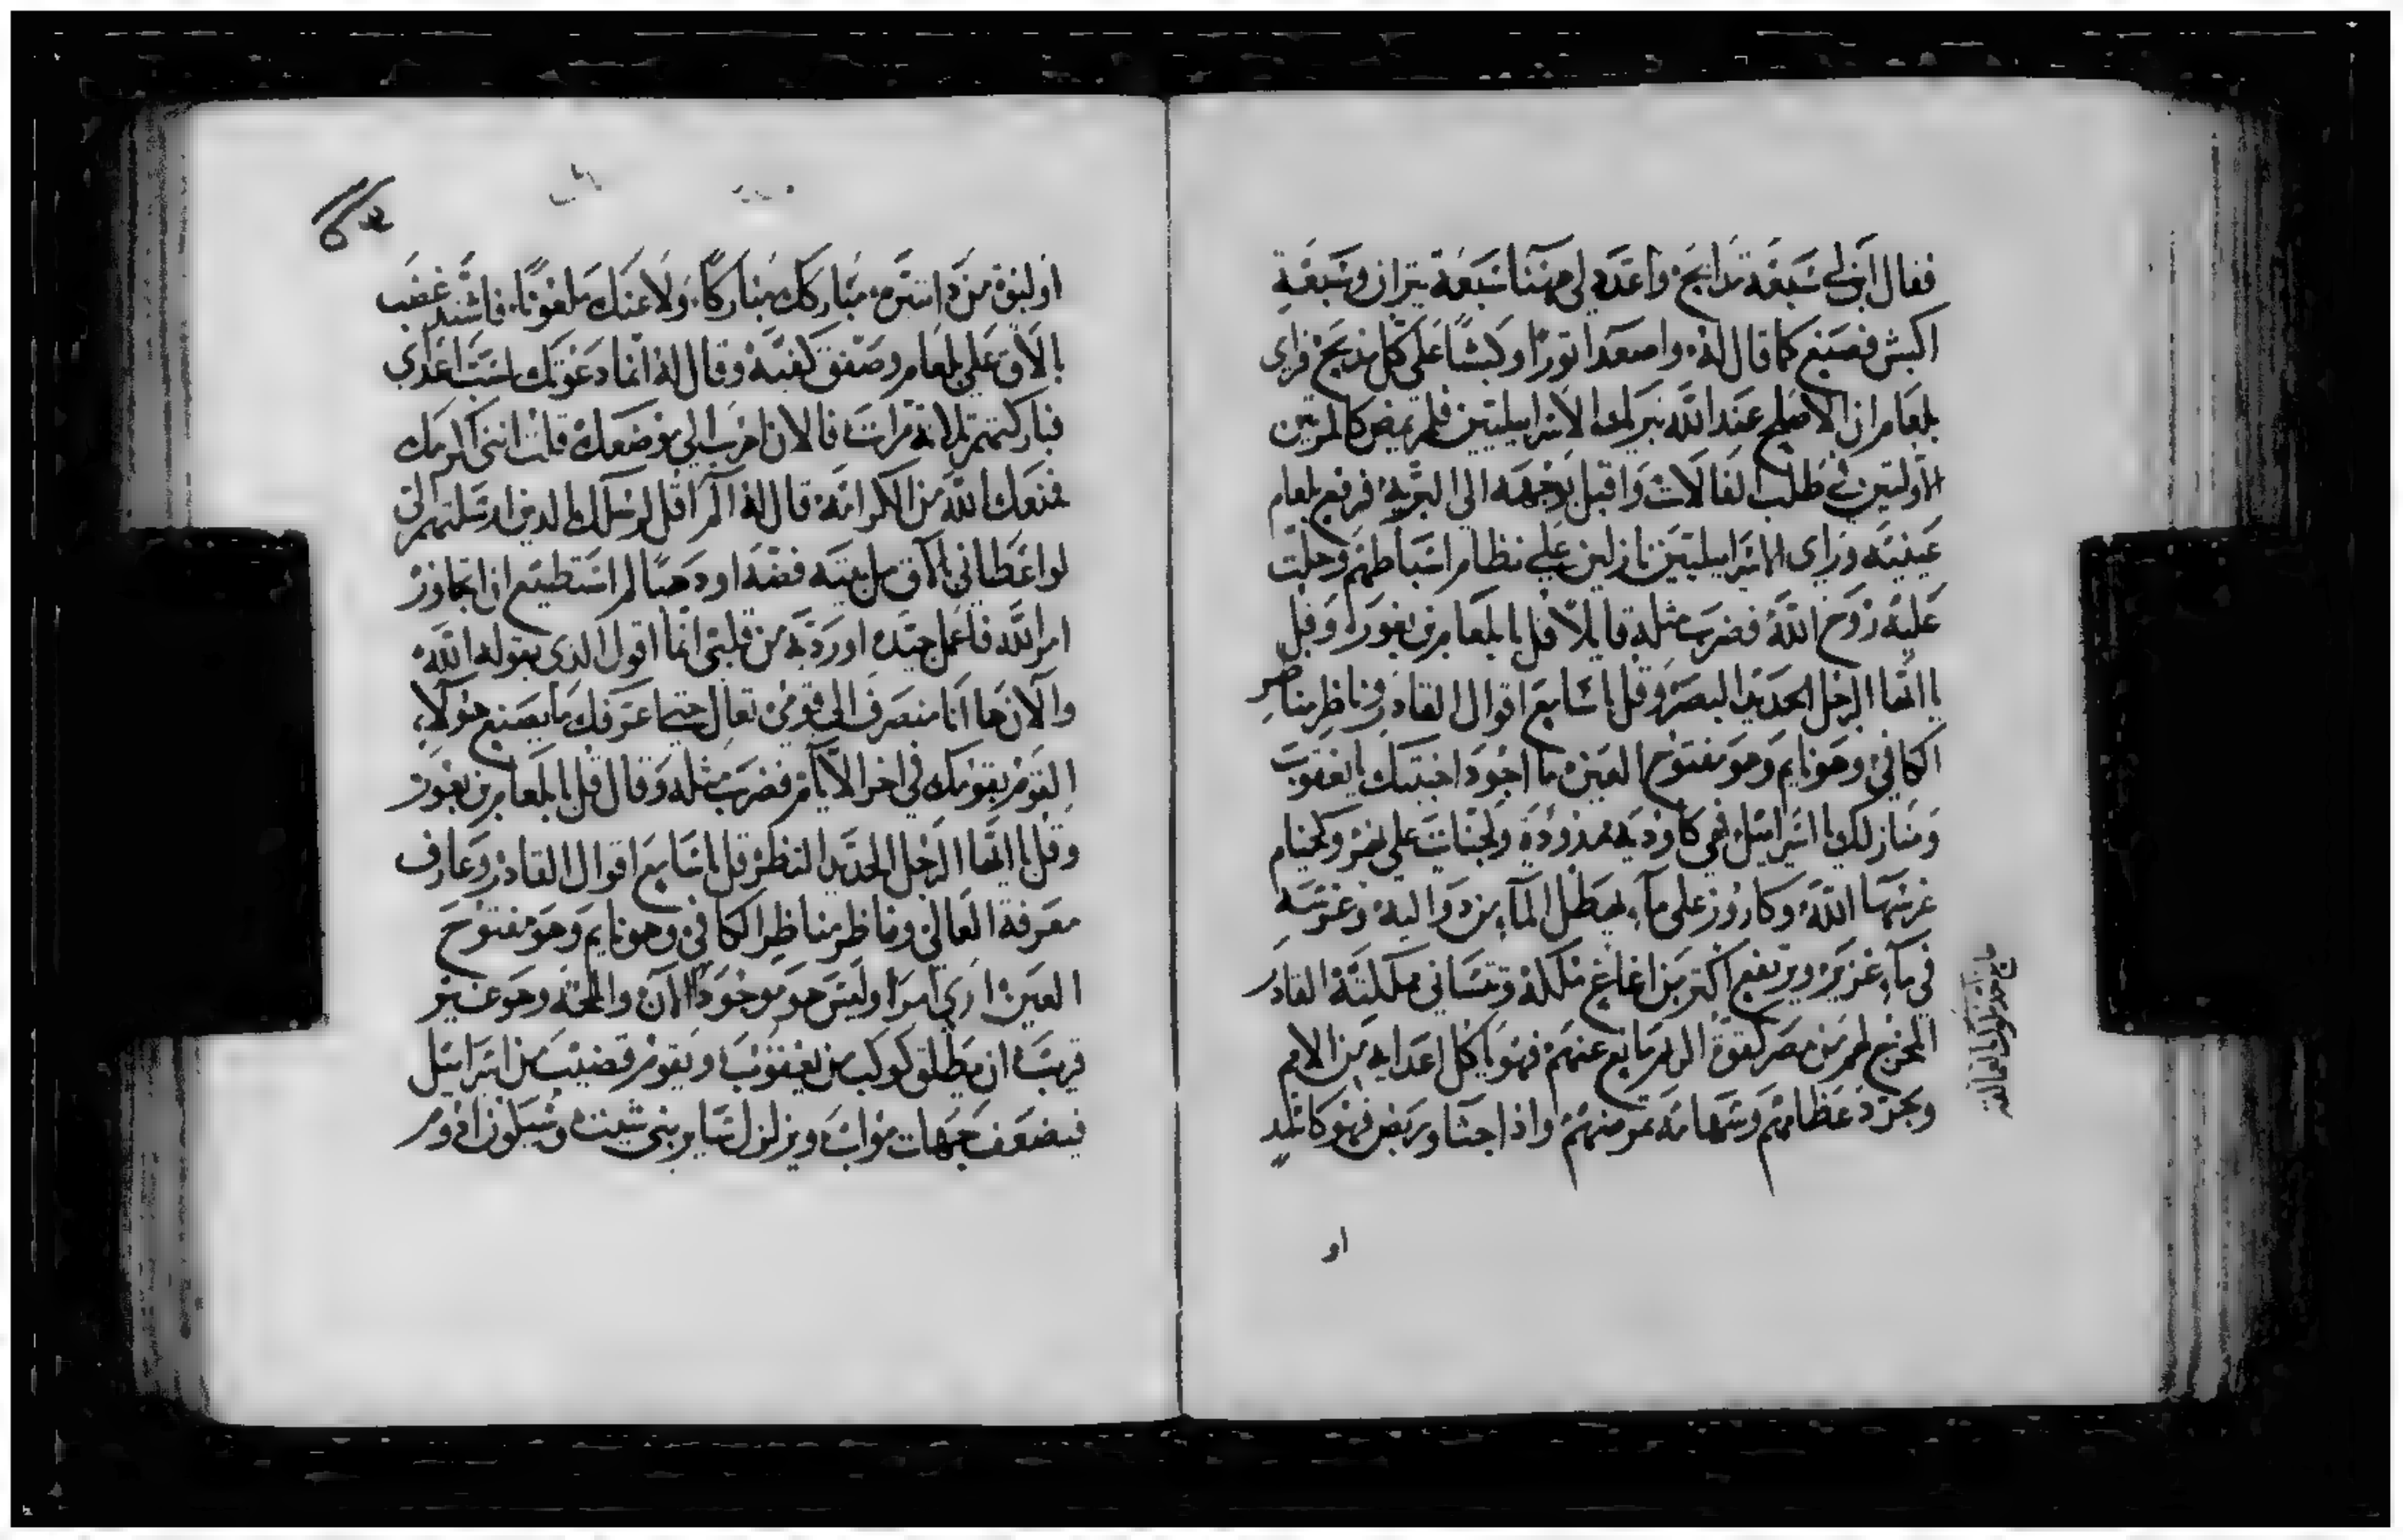 فقال ابن لي سبعة مدابح واعدد لي ههنا سبعة تيران وسبعة
اكبش فصنع كما قال له واصعدا تورا وكبشا على كل مذبح فراى
بلعام ان الاصلح عند الله تبريك الاسرايليين فلم يمض كالمرتين
الاولتين في طلب الفالات واقبل بوجهه الى البرية فرفع بلعام
عينيه وراى الاسرايليين نازلين على نظام اسباطهم وحلت
عليه روح الله فضرب مثله قايلا قل يا بلعام بن بعور وقل
يا ايها الرجل الحديد البصر وقل يا سامع اقوال القادر وناظر مناظر
الكافي وهو نايم وهو مفتوح العين ما اجود اخبيتك يا يعقوب
ومنازلك يا اسراييل فهي كاودية ممدودة وكجنات على نهر وكخيام
غرسها الله وكاروز على ماء يهطل الماء من دواليه وغرسه
في ماء غزير ويرتفع اكتر من اغاغ ملكه وتتسانى مملكته القادر
المخرج لهم من مصر كقوة الريم مانع عنهم فهو ياكل اعدايه من الامم
ويجرد عظامهم وسهامه تمرضهم واذا جثا وربض فهو كاسد
او
اولبوة من ذا يتيره مباركك مباركا ولاعنك ملعونا فاشتد غضب
بالاق على بلعام وصفق كفيه وقال له انما دعوتك لسب اعداي
فباركتهم ثلاثة مرات فالان اهرب الى موضعك قلت انني اكرمك
فمنعك الله من الكرامة قال له الم اقل لرسلك الدين ارسلتهم الي
لو اعطاني بالاق مل بيته فضة او دهبا لم استطيع ان اتجاوز
امر الله فاعمل جيدة او ردية من قلبي انما اقول الذي يقوله الله
والان ها انا منصرف الى قومي تعال حتى اعرفك ما يصنع هولاء
القوم بقومك في اخر الايام فضرب مثله وقال قل يا بلعام بن بعور
وقل يا ايها الرجل الحديد النظر قل يا سامع اقوال القادر وعارف
معرفة العالي وناظر مناظر الكافي وهو نايم وهو مفتوح
العين ارى امرا وليس هو موجود الان والمحه وهو غير
قريب ان يطلق كوكب من يعقوب ويقوم قضيب من اسراييل
فيضعف جهات مواب ويزلزل ساير بني شيت وشيلون ادوم